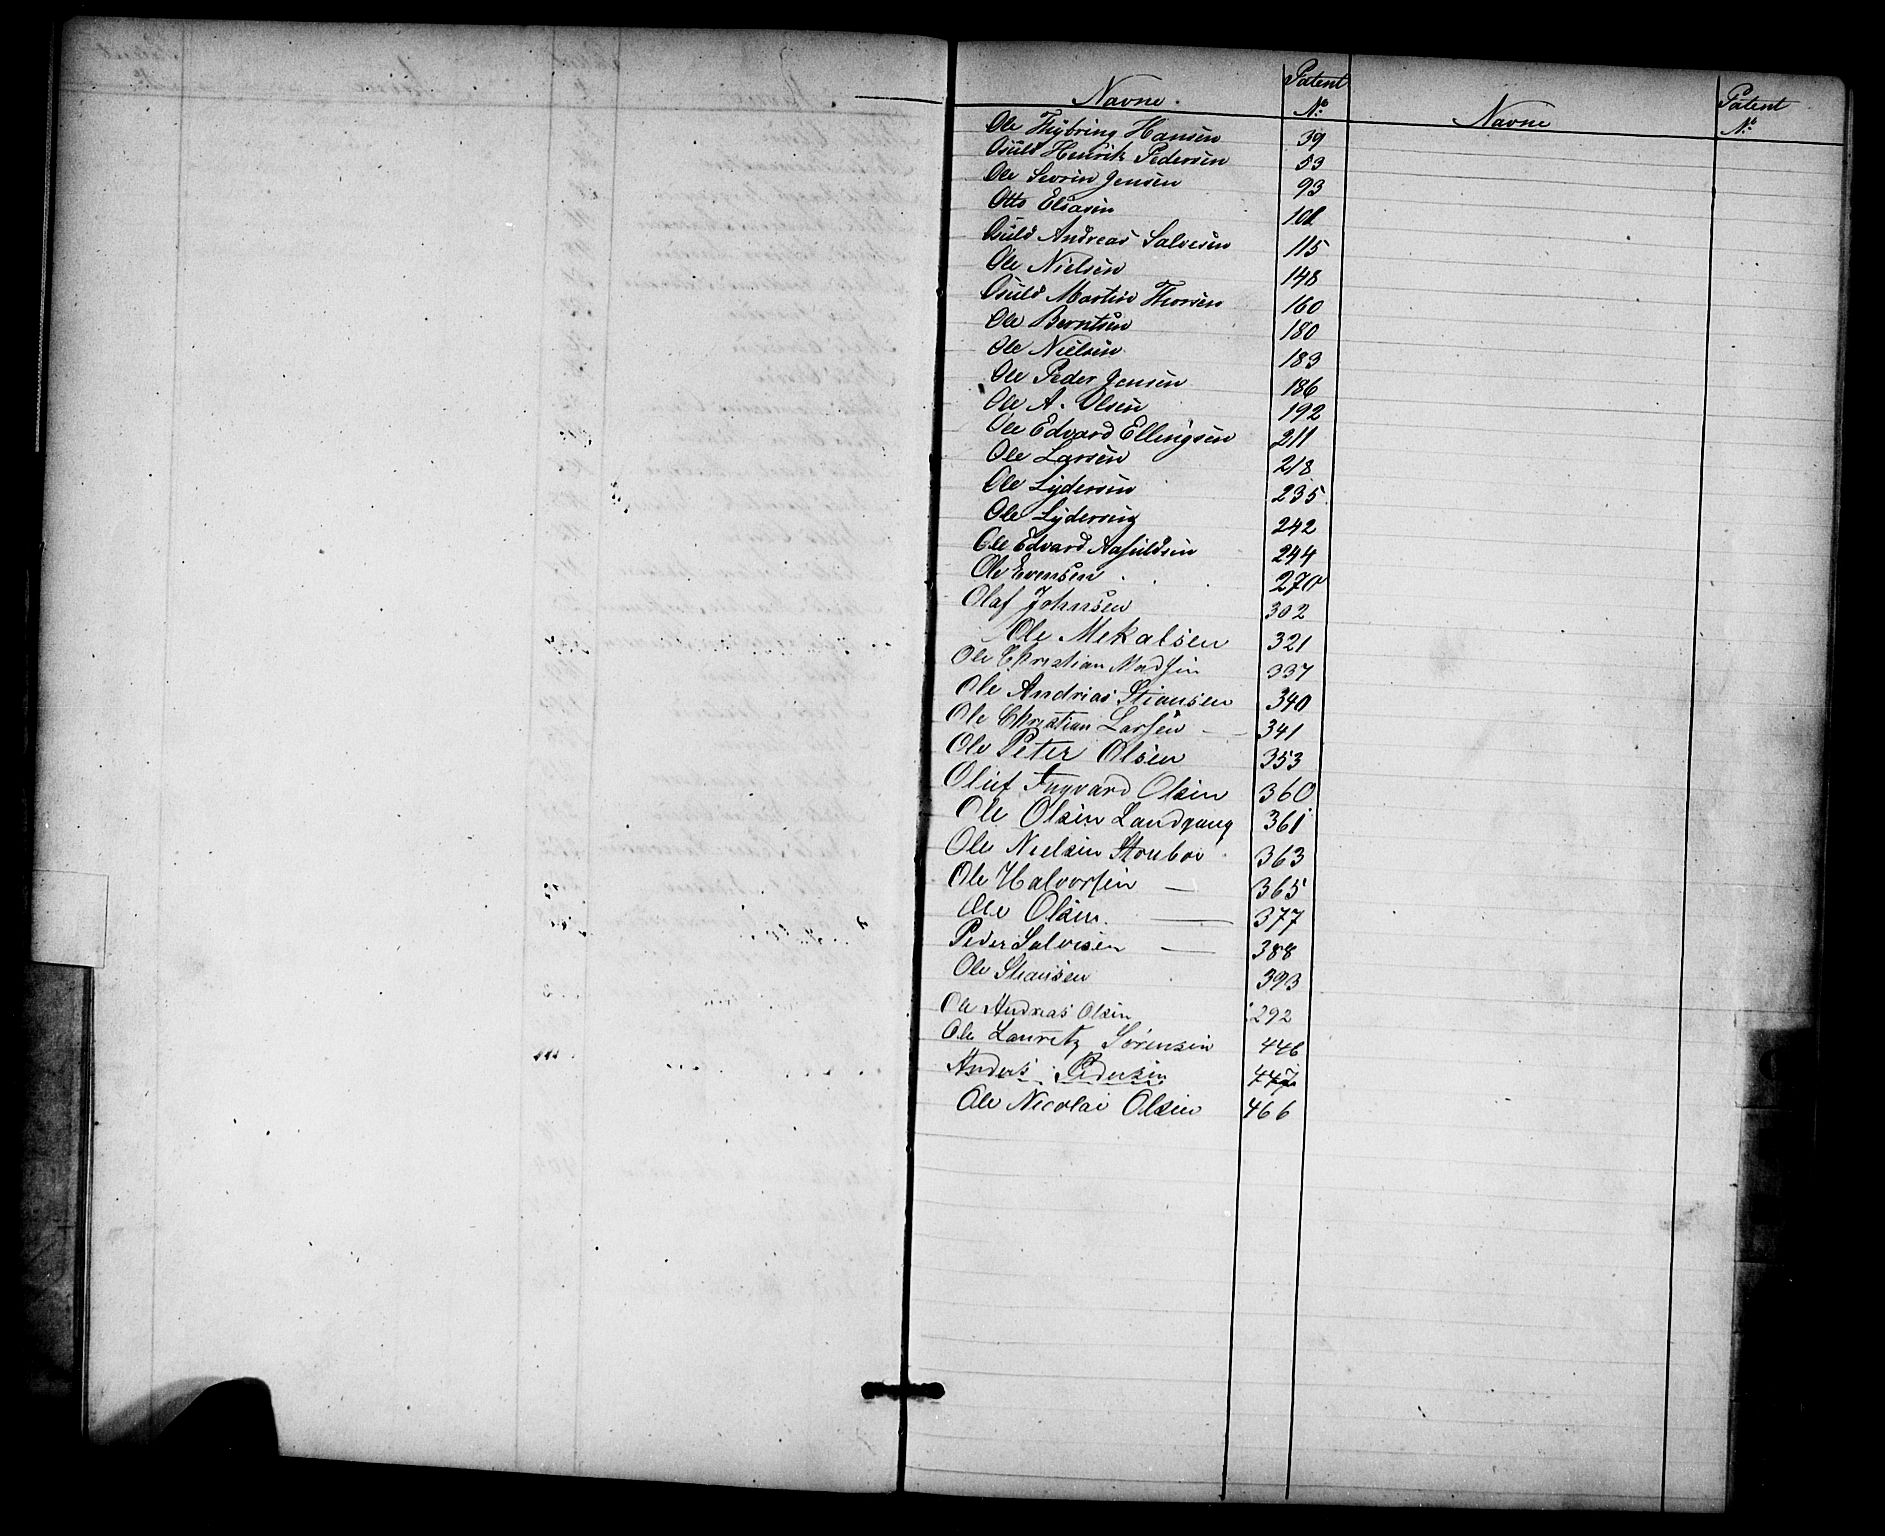 Navne. Patent No. Navne Patent No.
Ole Thybring Hansen 39
Osuld Henrik Pedersen 53
Ole Severin Jensen 93
Otto Eliasen 101
Osuld Andreas Salvesen 115
Ole Nielsen 148
Osuld Martin Thorsen 160
Ole Berntsen 180
Ole Nielsen 183
Ole Peder Jensen 186
Ole A. Olsen 192
Ole Edvard Ellingsen 211
Ole Larsen 218
Ole Lydersen 235
Ole Lydersen 242
Ole Edvard Aasuldsen 244
Ole Evensen 270
Olaf Johnsen 302
Ole Mekalsen 321
Ole Christian Madsen 337
Ole Andrias Stiansen 340
Ole Christian Larsen 341
Ole Peter Olsen 353
Oluf Ingvard Olsen 360
Ole Olsen Landgang 361
Ole Nielsen 363
Ole Halvorsen — 365
Ole Olsen. — 377
Peder Salvesen — 388
Ole Stiansen 393
Ole Andreas Olsen 292
Ole Lauretz Sørensen 446
Anders Pedersen 447
Ole Nicolai Olsen 466